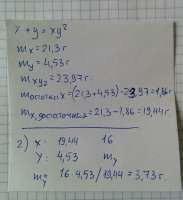 x + y = xy²
mx = 21,3 г
my = 4,53 г
mxy2 = 23,97 г.
mостатки x = (21,3 + 4,53) - 23,97 = 1,86 г
mx, достаточная = 21,3 - 1,86 = 19,44 г
2) x: 19,44 16
y: 4,53 my
my = 16 · 4,53 / 19,44 = 3,73 г.